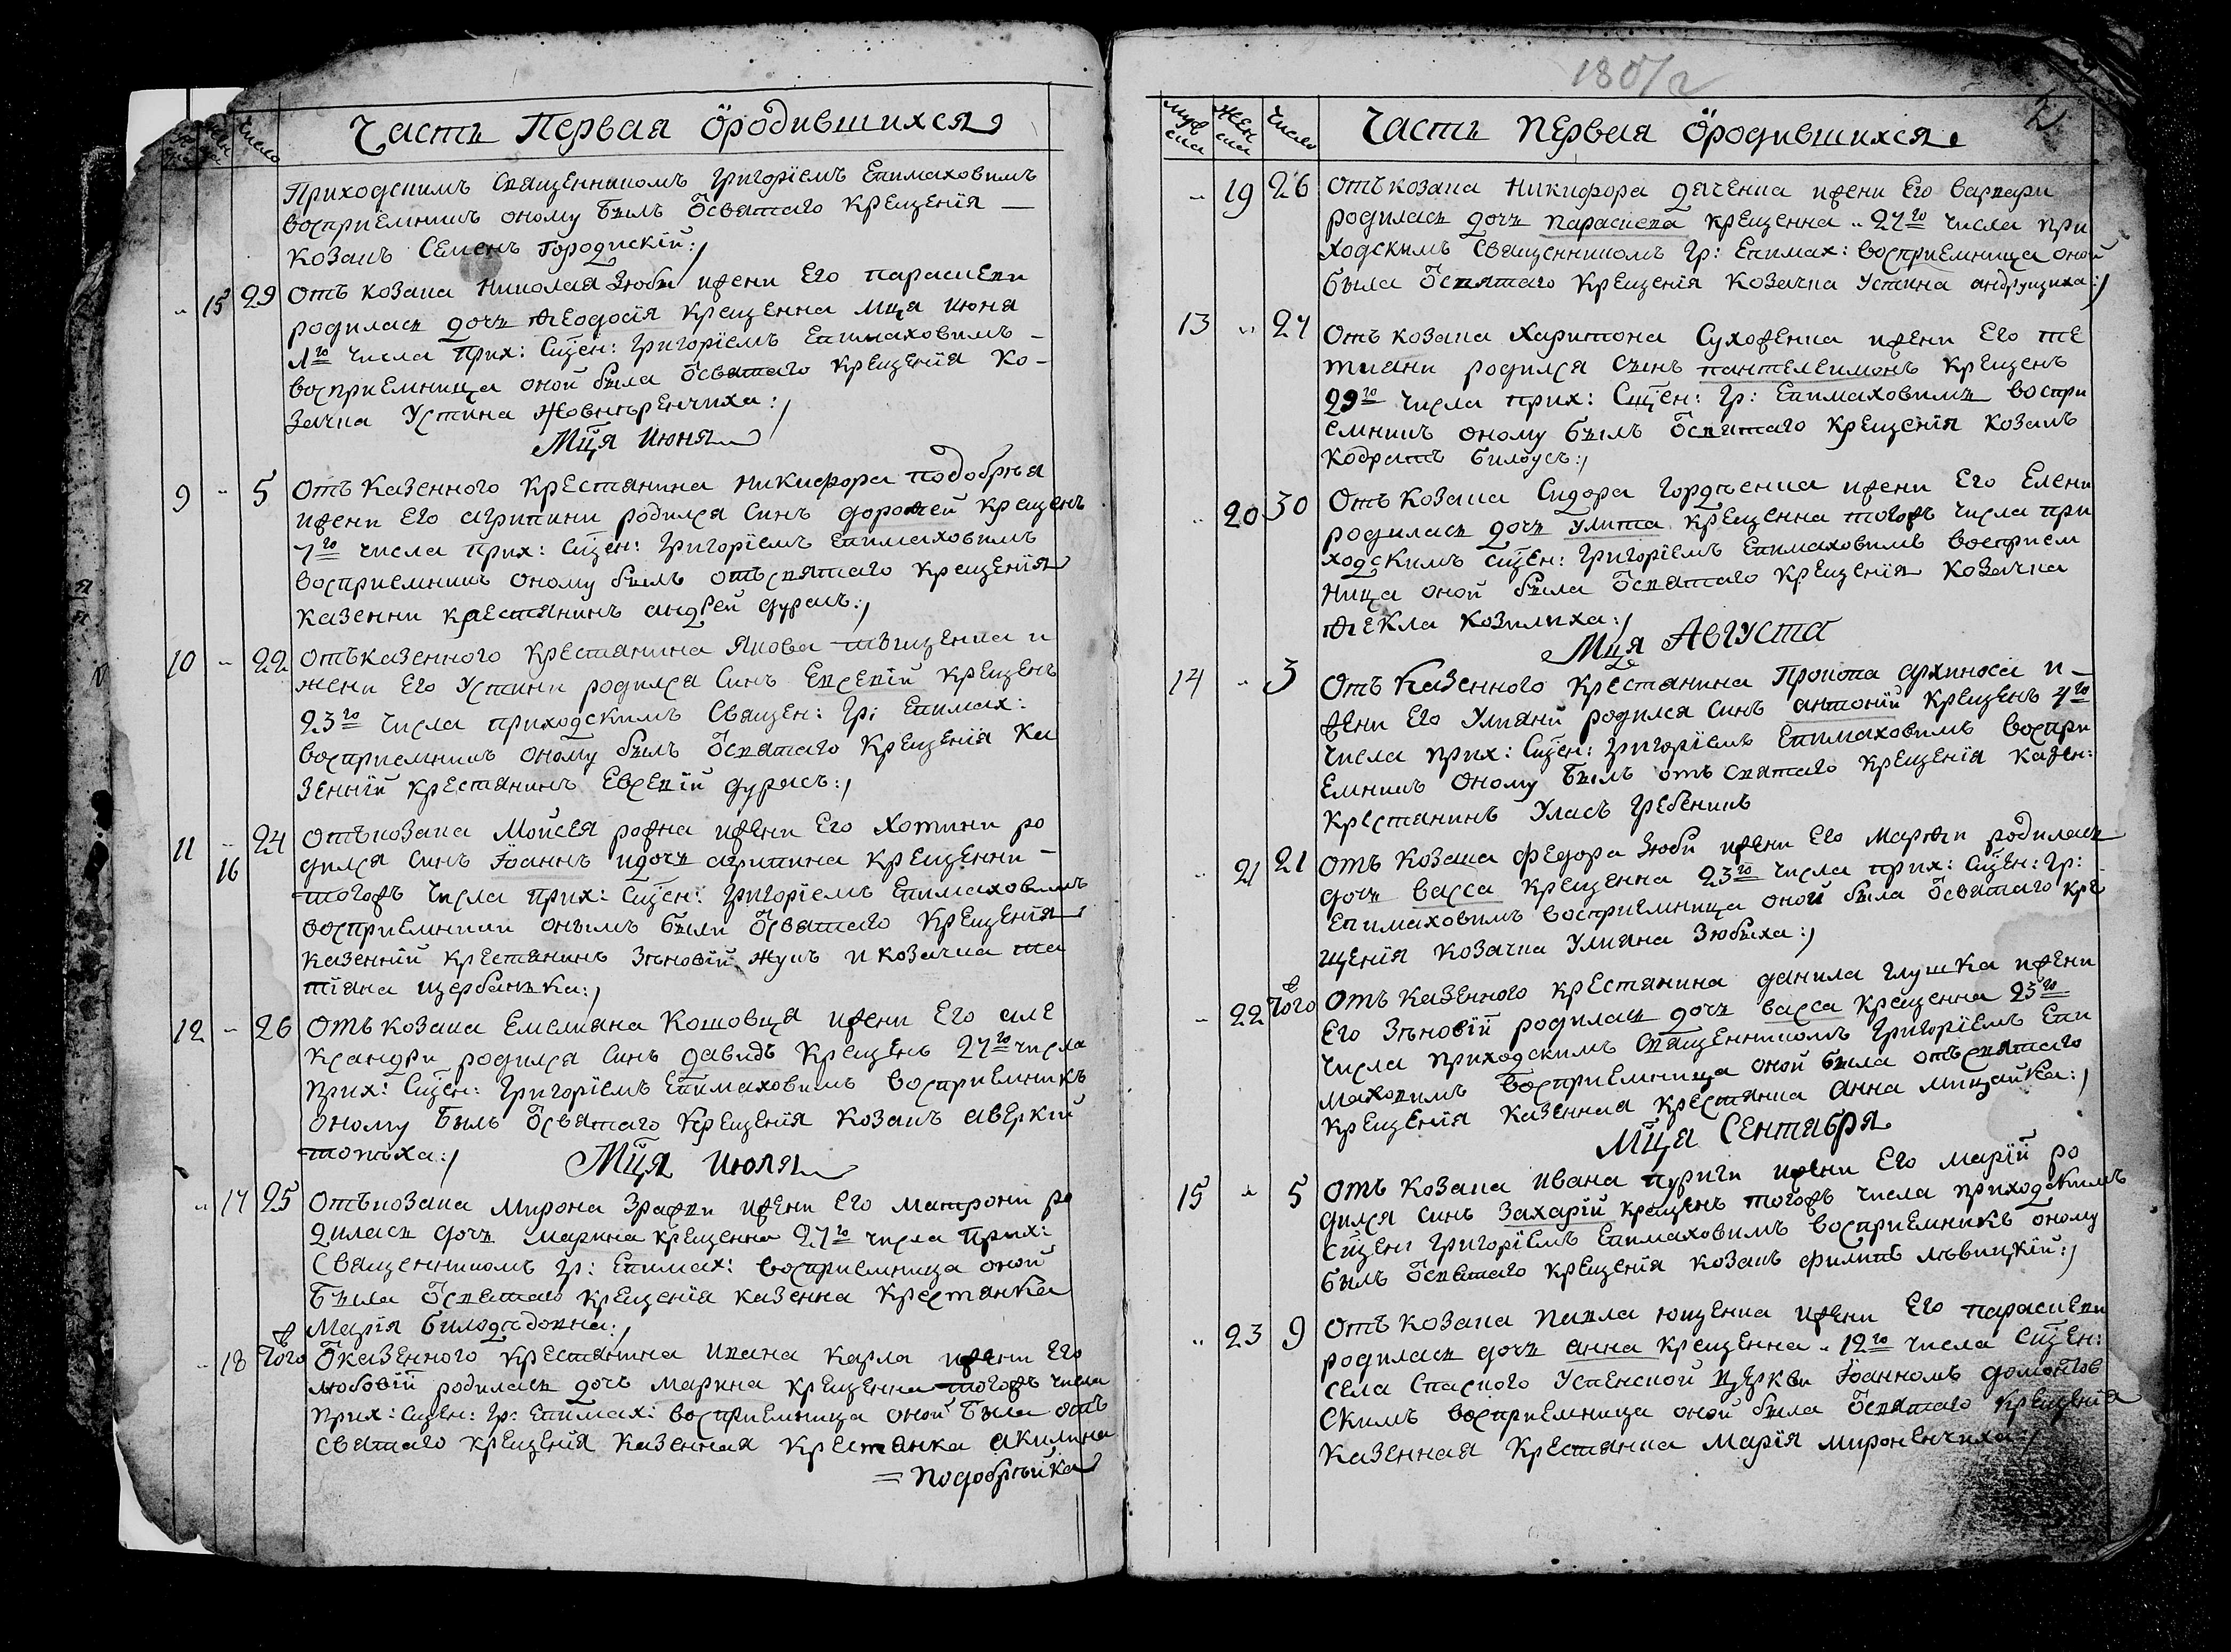 Часть Первая о родившихся
число
Приходскимъ священникомъ Григоріемъ Епимаховимъ
восприемникъ оному былъ от святаго крещенія —
козакъ Семенъ Городискій:/
„ 15 29 Отъ козака Николая Зюби ижени Его параскеви
родилась дочь Ѳеодосія крещенна мца июня
1го числа прих: сщен: Григоріемъ Епимаховимъ –
восприемница оной была от святаго крещенія ко–
зачка Устина Жовнѣренчиха:/
Мца июня
9 „ 5 Отъ казенного крестянина никифора подобрѣя
ижени его агрипини родился синъ дороѳей крещенъ
7го числа прих: сщен: Григоріемъ Епимаховимъ
восприемникъ оному былъ отъ святаго крещенія
казенни крестянинъ андрей дурасъ:/
10 „ 22 Отъ казенного крестянина Якова и
жени его Устини родился синъ Евсевій крещенъ
23го числа приходскимъ священ: Гр: Епимах:
восприемникъ оному былъ от святаго крещенія ка
зеный крестянинъ Евсевій дурасъ:/
11 „ 24 Отъ козака Мойсея рожна ижени его Хотини ро
16 дился синъ Іоаннъ идочь агрипина крещенни –
тогожъ числа прих: сщен: Григоріемъ Епимаховимъ
восприемники онымъ были от святаго крещенія
казенній крестянинъ Зѣновій Жукъ и козачка та
тіяна щербанька:/
12 – 26 Отъ козака Емелиана Кошовця ижени его але
ксандри родился синъ давидъ крещенъ 27го числа
прих: сщен: Григоріемъ Епимаховимъ восприемникъ
оному былъ от святаго крещенія козакъ аверкій
топѣха:/ Мца июля
„ 17 25 Отъ козака Мирона ижени его матрони ро
дилась дочь марина крещенна 27го числа прих:
священникомъ гр: Епимах: восприемница оной
была от святаго крещенія казенна крестянка
Марія билодѣдовна:/
„ 18 того ж От казенного крестянина ивана карла ижени его
любовій родилась дочь марина крещенна тогожъ числа
прих: сщен: гр: Епимах: восприемница оной была отъ
святаго крещенія казенная крестянка акилина
= подобрѣйка
180/2
2
муж ска жен ска число Часть первая о родившихся
„ 19 26 Отъ козака Никифора дяченка ижени его варвари
родилась дочь параскева крещенна „ 27го числа при
ходскимъ священникомъ гр: Епимах: восприемница оной
была от святаго крещенія козачка Устина андрущиха:/
13 „ 27 Отъ козака Харитона Сухоженка ижени его те
тиани родился сынъ пантелеимонъ крещенъ
29го числа прих: сщен: гр: Епимаховимъ воспри
емникъ оному былъ от святаго крещенія козакъ
кодратъ билоусъ:/
„ 20 30 Отъ козака Сидора Гордѣенка ижени его Елени
родилась дочь улита крещенна тогожъ числа при
ходскимъ сщен: Григоріемъ Епимаховимъ восприем
ница оной была от святаго крещенія козачка
Ѳекла козилиха:/
Мца Августа
14 „ 3 Отъ казенного крестянина Прокопа архиноса и–
жени его Улияни родился синъ антоній крещенъ 4го
числа прих: сщен: Григоріемъ Епимаховимъ воспри
емникъ оному былъ отъ святаго крещенія казен:
крестянинъ Уласъ гребеникъ
„ 21 21 Отъ козака федора Зюби ижени его марѳи родилась
дочь васса крещенна 23го числа прих: сщен: гр:
Епимаховимъ восприемница оной была от святаго кре
щенія козачка Улияна Зюбыха:/
„ 22 того ж Отъ казенного крестянина данила глушка ижени
его Зѣновій родилась дочь васса крещенна 25го
числа приходскимъ священникомъ Григоріемъ Епи
маховимъ восприемница оной была отъ святаго
крещенія казенная крестянка анна мицайка:/
Мца Сентабря
15 „ 5 Отъ козака ивана пуриги ижени его маріи ро
дился синъ Захарій крещенъ тогожъ числа приходскимъ
сщен: Григоріемъ Епимаховимъ восприемникъ оному
былъ от святаго крещенія козакъ филипъ лѣвицкій:/
„ 23 9 Отъ козака павла ющенка ижени его параскеви
родилась дочь анна крещенна „ 12го числа сщен:
села Спаского Успенской церкви Іоанномъ домонтов
скимъ восприемница оной была от святаго крещенія
казенная крестянка Марія миронѣнчиха:/